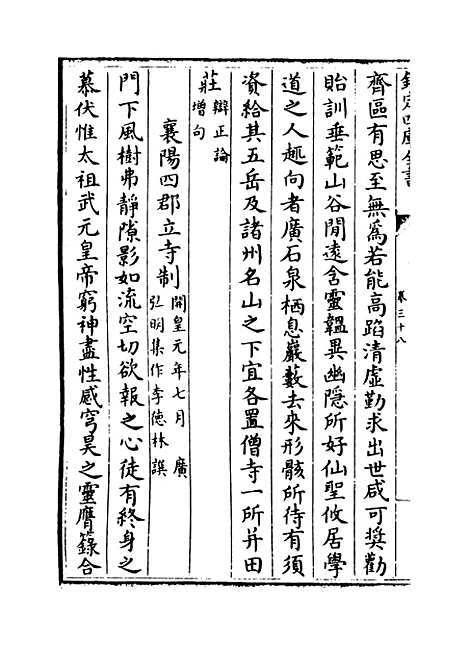 欽定四庫全書
卷三十八
齊區有思至無為若能高蹈清虛勤求出世咸可獎勸
貽訓垂範山谷閒遠含靈韞異幽隱所好仙聖攸居學
道之人趣向者廣石泉栖息巖藪去來形骸所待有須
資給其五岳及諸州名山之下宜各置僧寺一所并田
莊辯正論增句
襄陽四郡立寺制開皇元年七月廣弘明集作李德林譔
門下風樹弗靜隙影如流空切欲報之心徒有終身之
慕伏惟太祖武元皇帝窮神盡性感穹昊之靈膺籙合